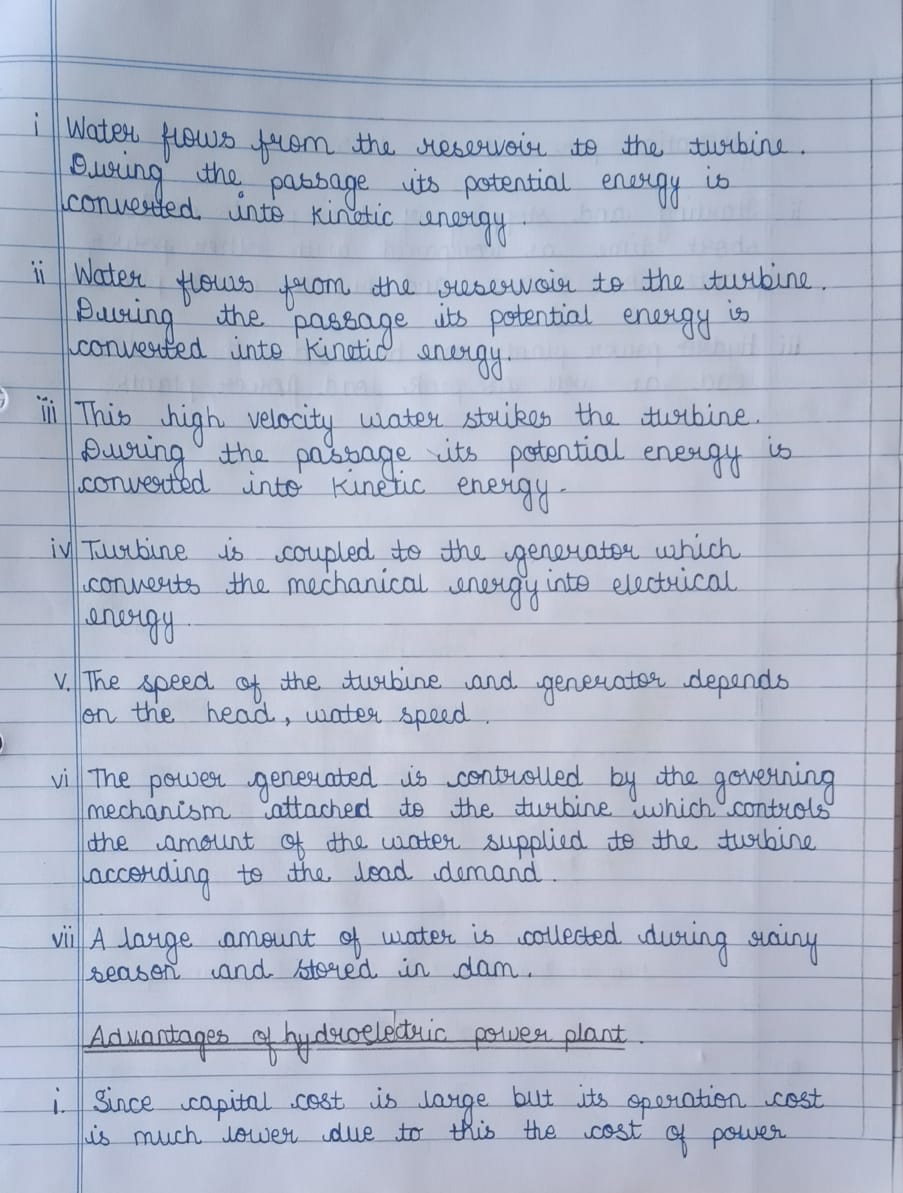 i Water flows from the reservoir to the turbine.
During the passage its potential energy is
converted into kinetic energy.
ii Water flows from the reservoir to the turbine.
During the passage its potential energy is
converted into kinetic energy.
iii This high velocity water strikes the turbine.
During the passage its potential energy is
converted into kinetic energy.
iv Turbine is coupled to the generator which
converts the mechanical energy into electrical
energy.
v. The speed of the turbine and generator depends
on the head, water speed.
vi The power generated is controlled by the governing
mechanism attached to the turbine which controls
the amount of the water supplied to the turbine
according to the load demand.
vii A large amount of water is collected during rainy
season and stored in dam.
Advantages of hydroelectric power plant.
i. Since capital cost is large but its operation cost
is much lower due to this the cost of power